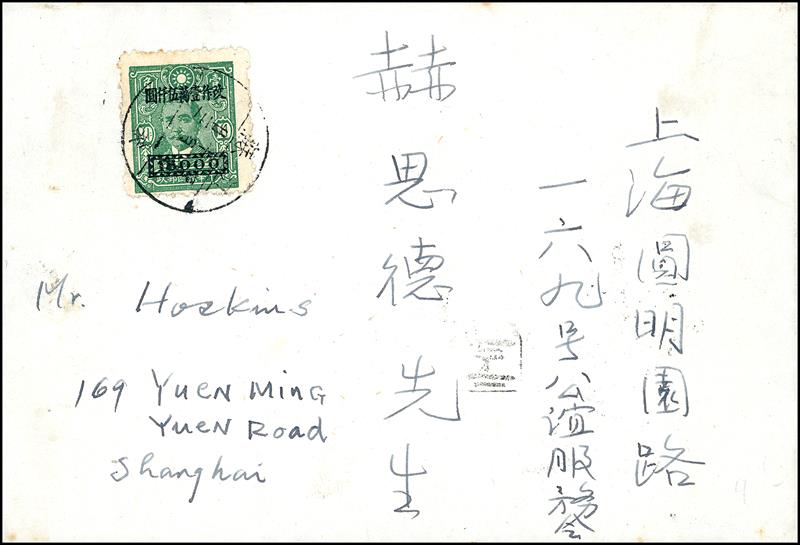 改作壹萬伍仟圓
15000
上海圓明園路
一六九号公誼服務会
赫思德先生
Mr. Hoskins
169 YUEN MING
YUEN ROAD
Shanghai